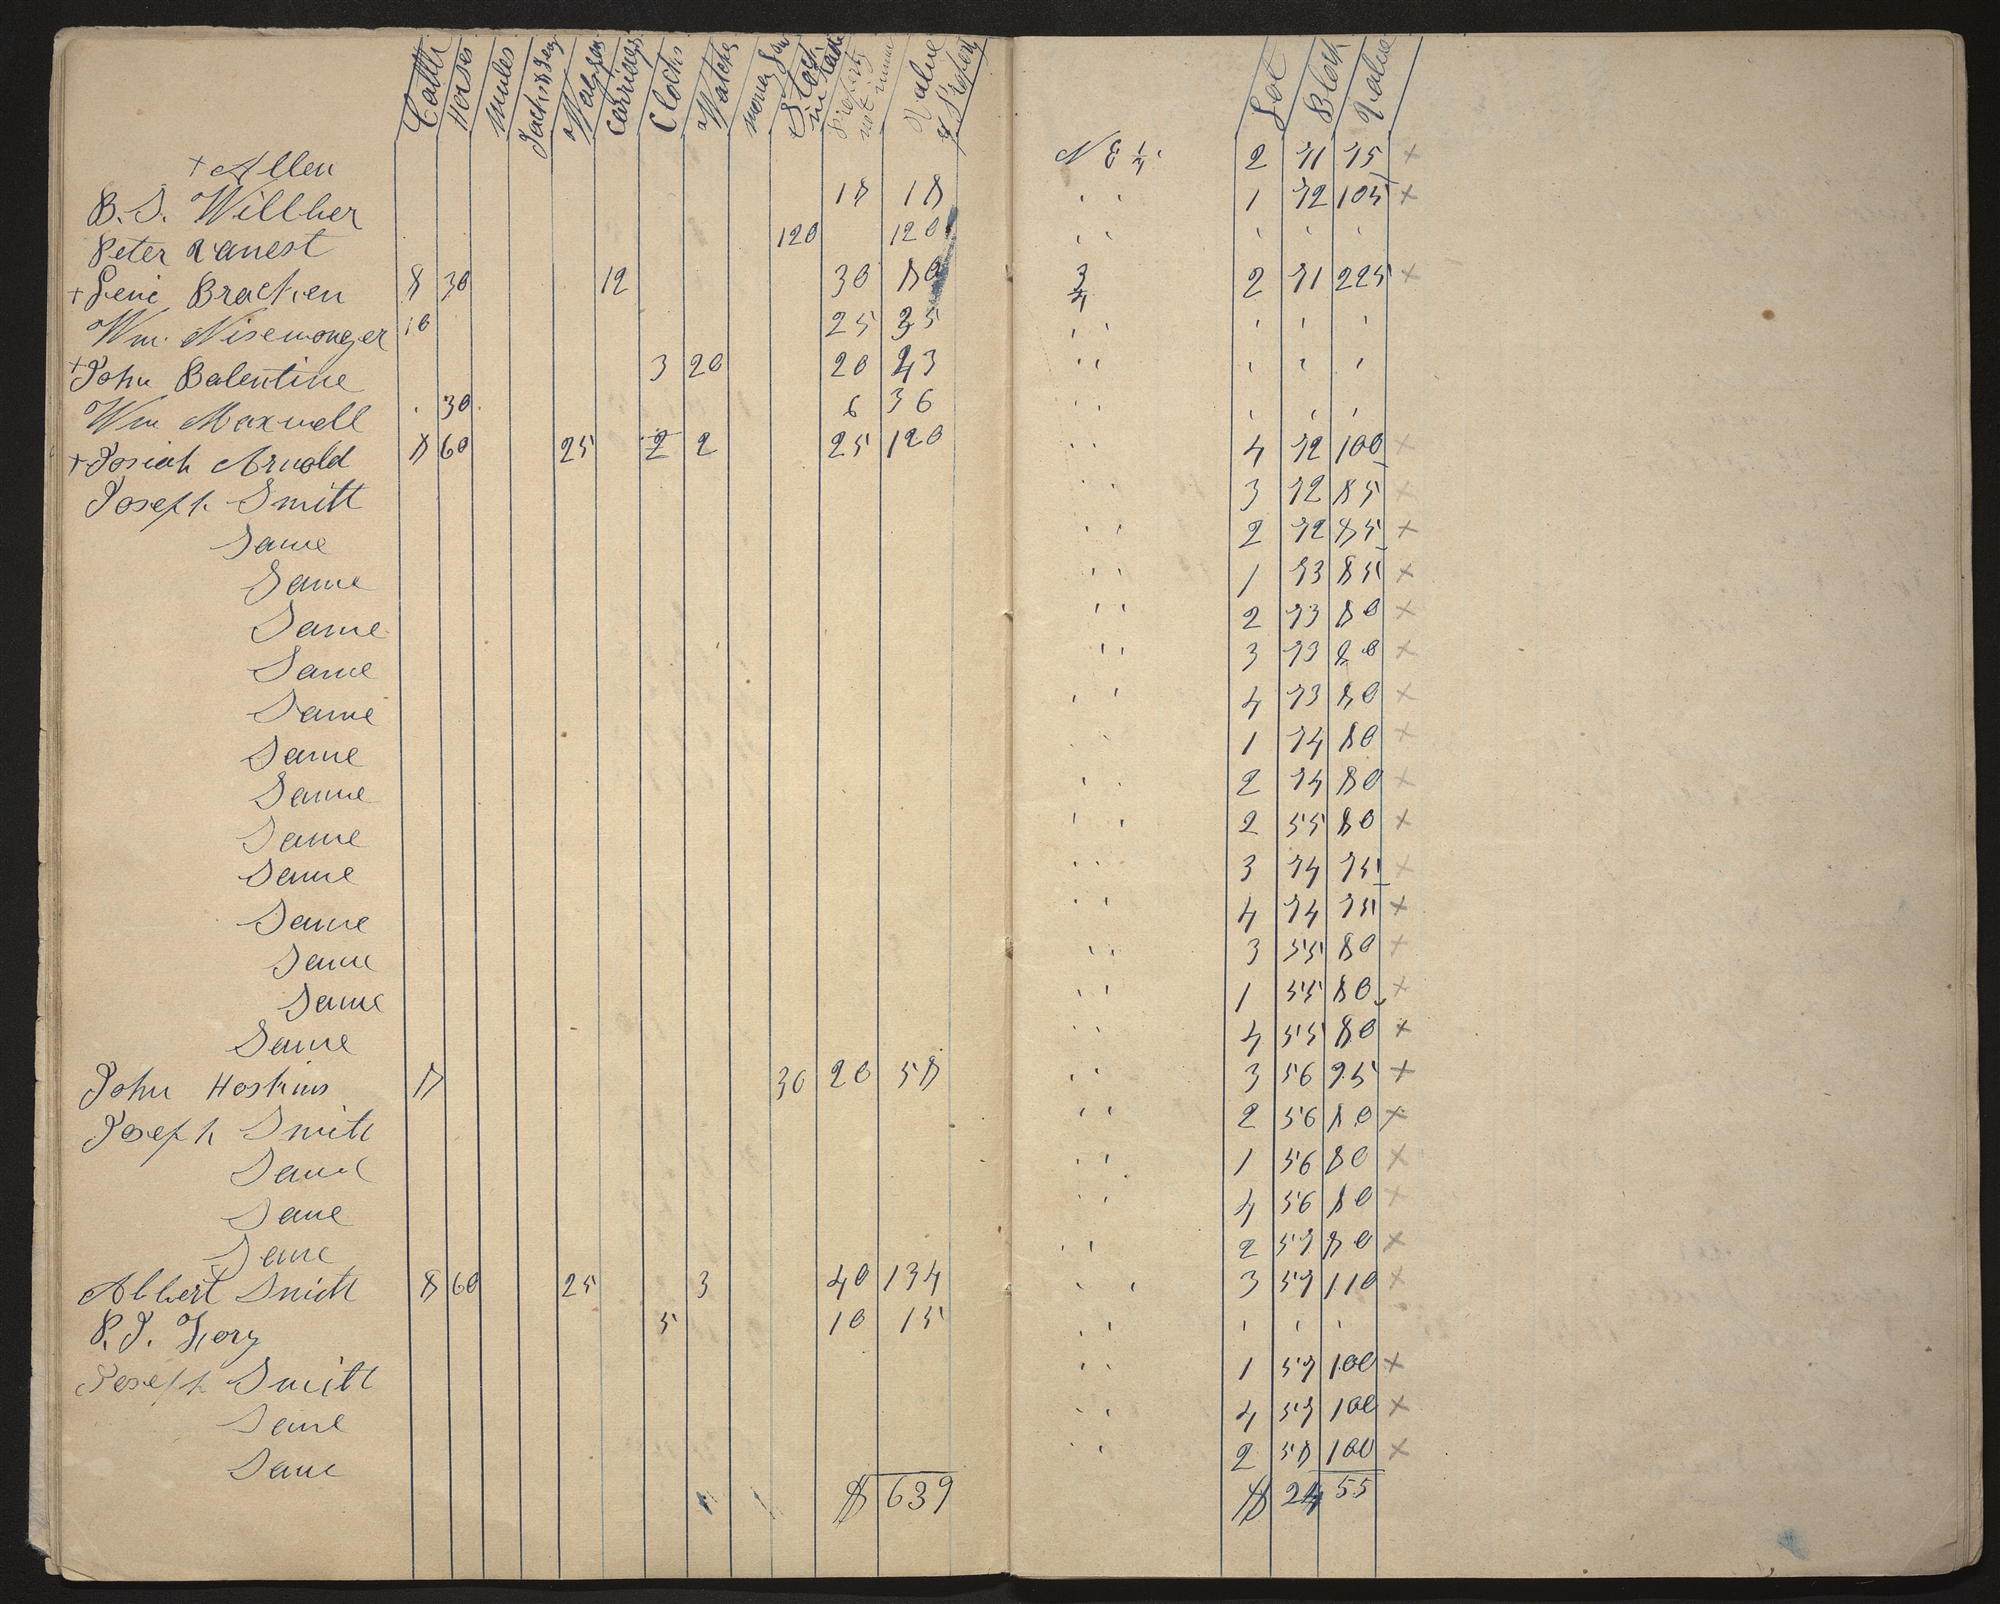 Cattle Horses Mules Jacks & Jen Waggon Carriages Clocks Watches money Loan Stock in trade Property not innum Value of Property Lot Block Value
+ Allen N E 1/4 2 71 75 +
B. S. Willber 18 18 " " 1 72 105 +
Peter Vanest 120 120 " " ' ' '
+ Levi Bracken 8 30 12 30 80 3/4 2 71 225 +
Wm. Nisewonger 10 25 35 " " ' ' '
+ John Balentine 3 20 20 43 " " ' ' '
Wm Maxwell . 30 6 36 " " ' ' '
+ Josiah Arnold 8 60 25 2 2 25 120 " " 4 72 100 +
Joseph Smith " " 3 72 85 +
Same " " 2 72 85 +
Same " " 1 73 85 +
Same " " 2 73 80 +
Same " " 3 73 80 +
Same " " 4 73 80 +
Same " " 1 74 80 +
Same " " 2 74 80 +
Same " " 2 55 80 +
Same " " 3 74 75 +
Same " " 4 74 75 +
Same " " 3 55 80 +
Same " " 1 55 80 +
Same " " 4 55 80 +
John Hoskins 8 30 20 58 " " 3 56 95 +
Joseph Smith " " 2 56 80 +
Same " " 1 56 80 +
Same " " 4 56 80 +
Same " " 2 57 80 +
Albert Smith 8 60 25 3 40 134 " " 3 57 110 +
P. J. 5 10 15 " " ' ' '
Joseph Smith " " 1 57 100 +
Same " " 4 57 100 +
Same " " 2 58 100 +
$ 639 $ 2455